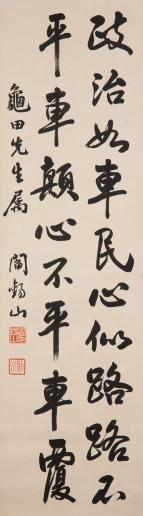 政治如車民心似路路不
平車顛心不平車覆
龜田先生属
閻錫山